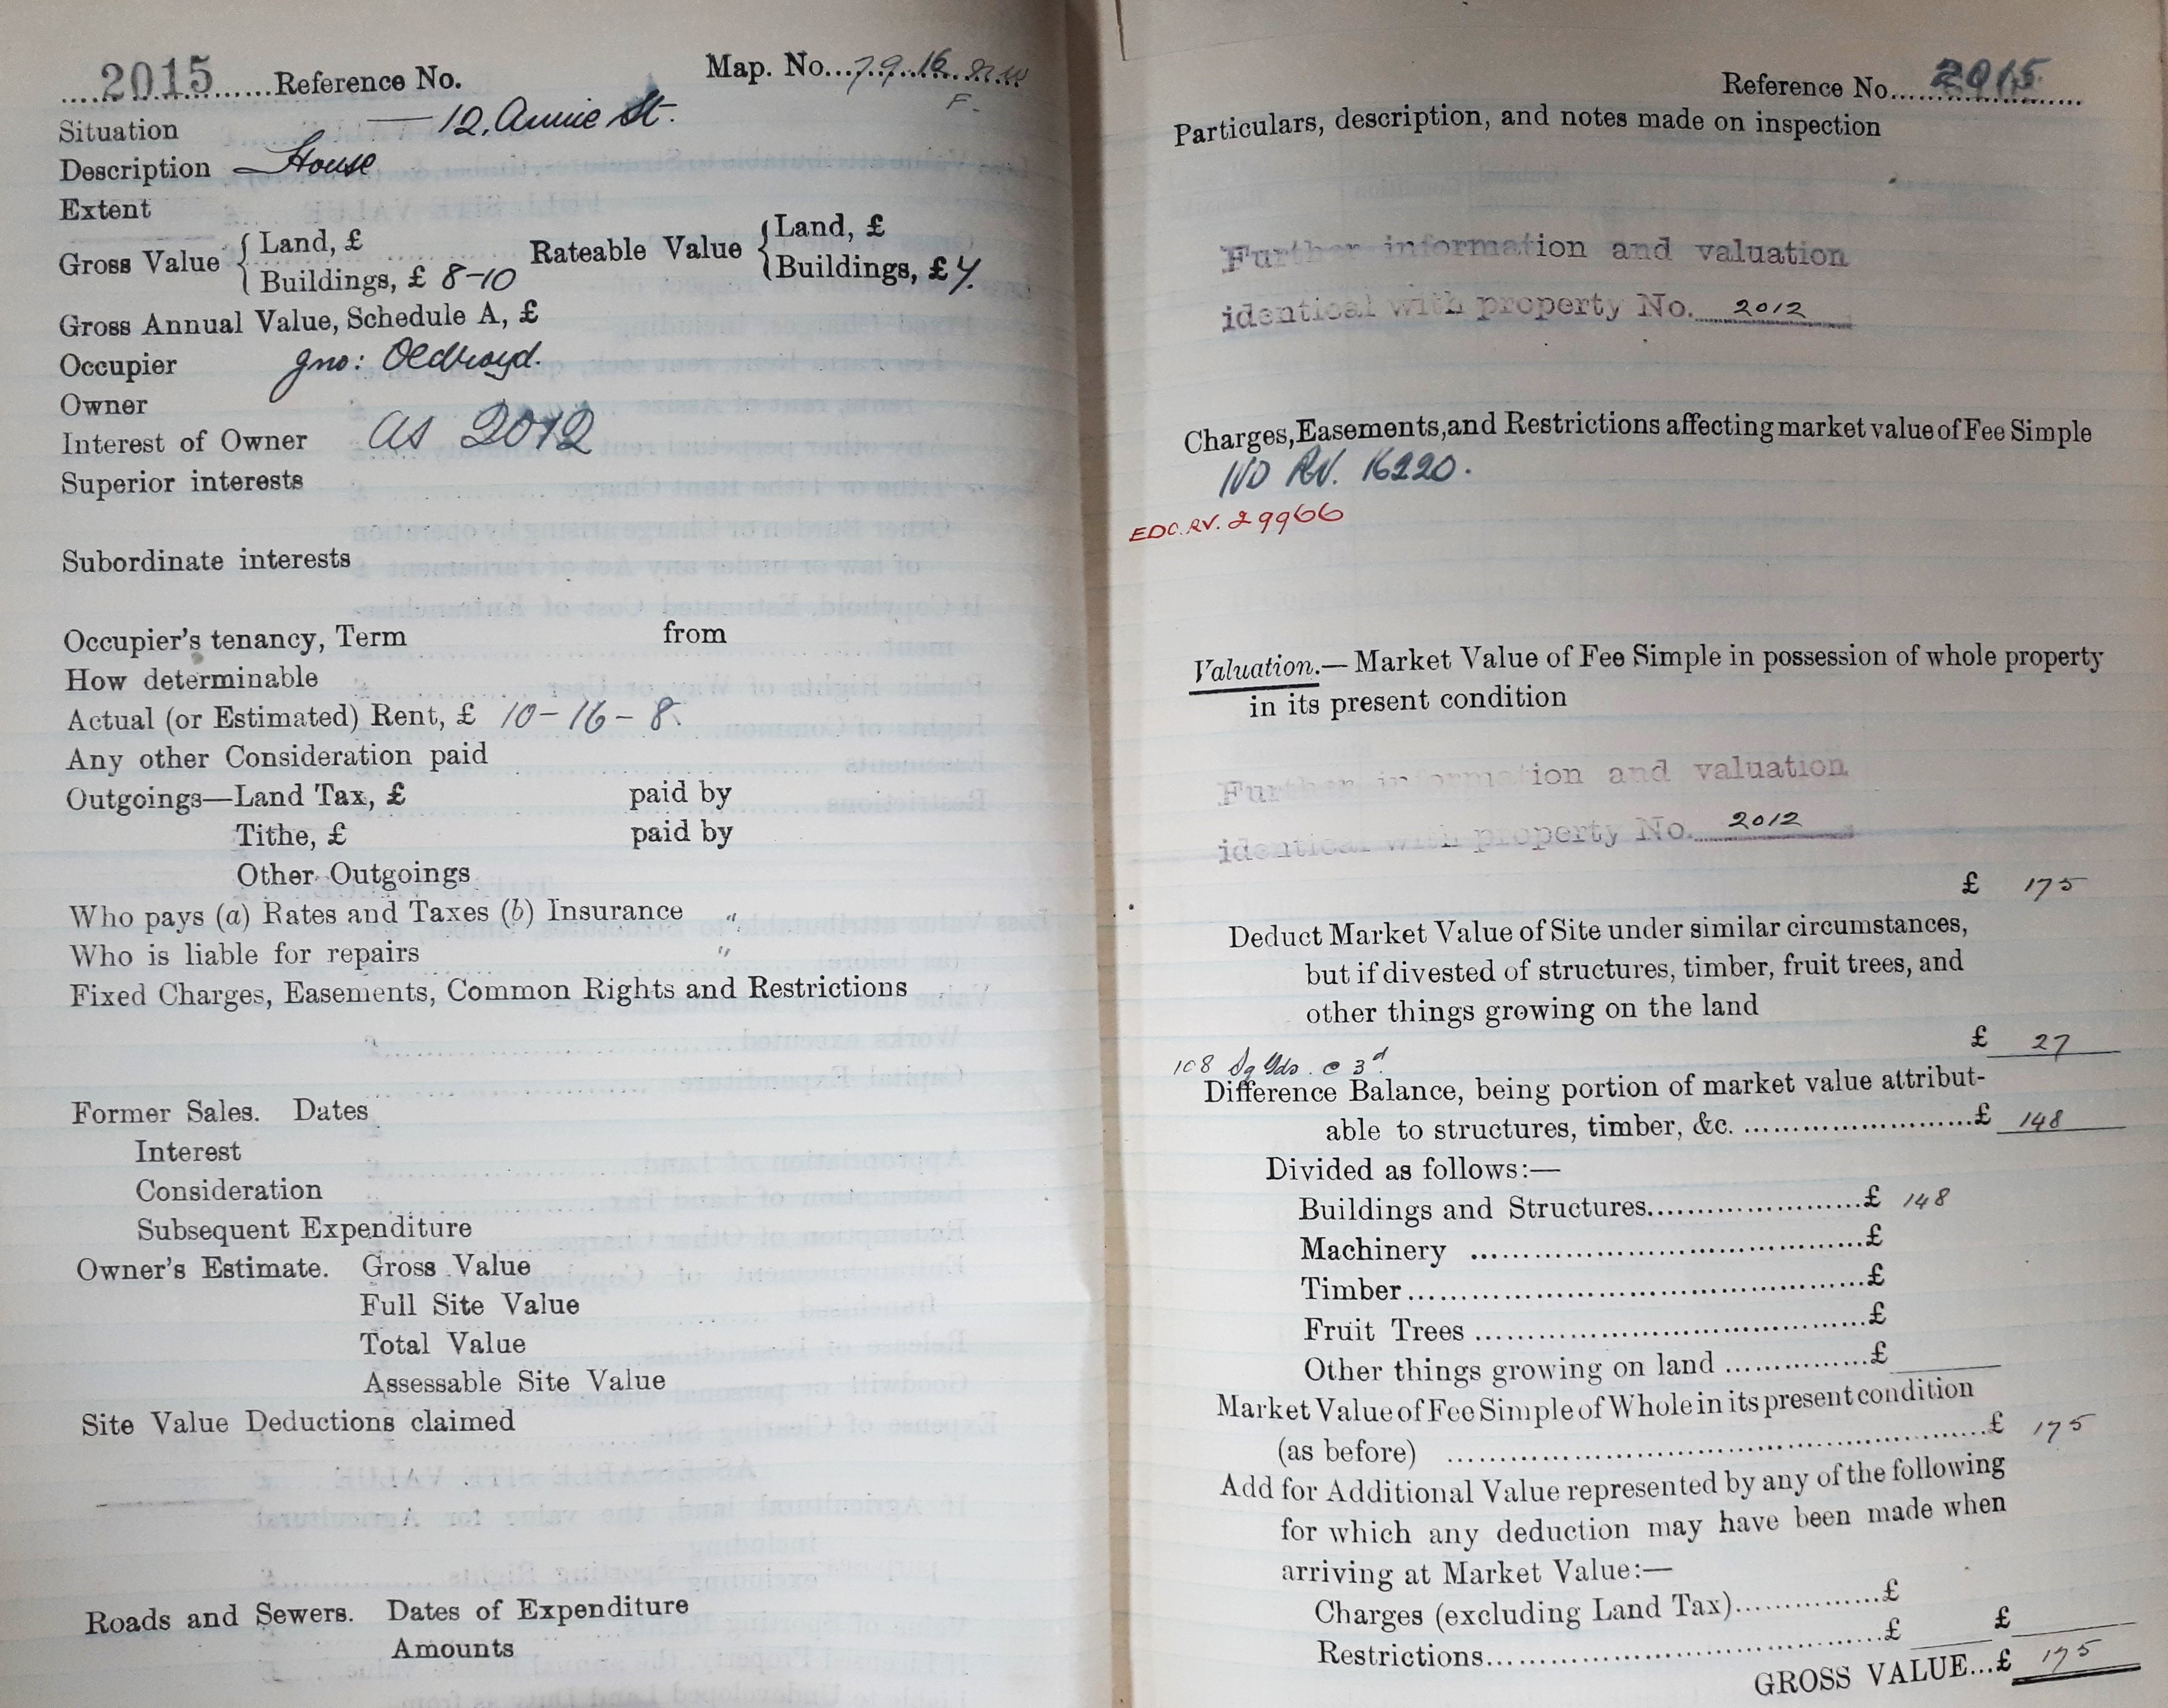 2015 Reference No. Map. No. 79.16
F.
Situation — 12, Annie St.
Description — House
Extent
Gross Value { Land, £ Rateable Value { Land, £
Buildings, £ 8-10 Buildings, £
Gross Annual Value, Schedule A, £
Occupier Jno: Oldroyd.
Owner
Interest of Owner as 2012
Superior interests
Subordinate interests
Occupier's tenancy, Term from
How determinable
Actual (or Estimated) Rent, £ 10-16-8.
Any other Consideration paid
Outgoings—Land Tax, £ paid by
Tithe, £ paid by
Other Outgoings
Who pays (a) Rates and Taxes (b) Insurance "
Who is liable for repairs "
Fixed Charges, Easements, Common Rights and Restrictions
Former Sales. Dates
Interest
Consideration
Subsequent Expenditure
Owner's Estimate. Gross Value
Full Site Value
Total Value
Assessable Site Value
Site Value Deductions claimed
Roads and Sewers. Dates of Expenditure
Amounts
Reference No. 2015
Particulars, description, and notes made on inspection
Further information and valuation
identical with property No. 2012
Charges, Easements, and Restrictions affecting market value of Fee Simple
RV. 16220.
EDC. RV. 29966
Valuation.— Market Value of Fee Simple in possession of whole property
in its present condition
Further information and valuation
identical with property No. 2012
£ 175
Deduct Market Value of Site under similar circumstances,
but if divested of structures, timber, fruit trees, and
other things growing on the land
£ 27
108 Sq Yds. @ 3d
Difference Balance, being portion of market value attribut-
able to structures, timber, &c. £ 148
Divided as follows:—
Buildings and Structures £ 148
Machinery £
Timber £
Fruit Trees £
Other things growing on land £
Market Value of Fee Simple of Whole in its present condition
(as before) £ 175
Add for Additional Value represented by any of the following
for which any deduction may have been made when
arriving at Market Value:—
Charges (excluding Land Tax) £
Restrictions £ £
GROSS VALUE...£ 175